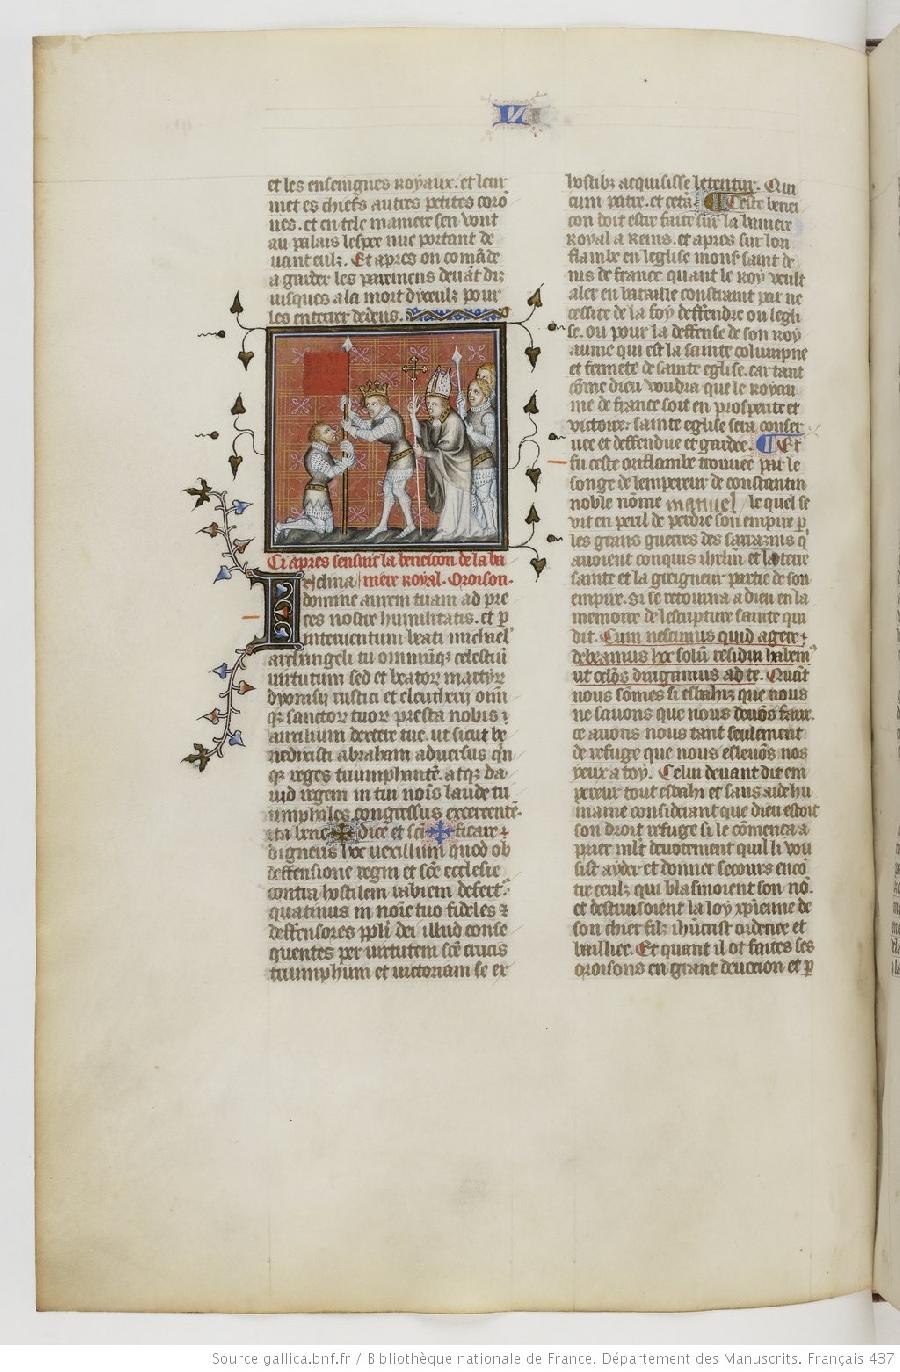 VI
et les enseignes royaux. et leur
met es chiefs autres petites coro
nes. et en tele maniere sen vont
au palais lespee nue portant de
uant eulz. Et apres on comāde
a garder les paremens deuāt diz
iusques a la mort dyceulz pour
les enterrer dedens.
Ci apres sensuit la beneicon de la ba
niere royal. Oroison.
Inclina
domine aurem tuam ad pre
ces nostre humilitatis. et p
interuentum beati michael
archangeli tui omniūqz celestiū
uirtutum sed et beatorʒ martyrʒ
dyonisij rustici et eleutherij oīm
qʒ sanctorʒ tuorʒ presta nobis
auxilium dextere tue. ut sicut be
nedixisti abraham aduersus qn
qʒ reges triumphantē. atqʒ da
uid regem in tui noīs laude tri
umphales congressus exercentē.
ita bene dice et scī ficare
digneris hoc uexillum quod ob
deffensione regni et scē ecclesie
contra hostilem rabiem defert.
quatinus in noīe tuo fideles
deffensores ppli dei illud conse
quentes per uirtutem scē crucis
triumphum et uictoriam se ex
hostibz acquisisse letentur. Qui
cum patre. et cetā. Ceste benei
con doit estre faite sur la baniere
royal a Reins. et apres sur lori
flambe en leglise monsʳ saint de
nis de france quant le roy veult
aler en bataille constraint par ne
cessite de la foy deffendre ou legli
se. ou pour la deffense de son roy
aume qui est la sainte columpne
et fermete de sainte eglise. car tant
cōme dieu voudra que le royau
me de france soit en prosperite et
victoire: sainte eglise sera conser
uee et deffendue et gardee. Et
fu ceste oriflambe trouuee par le
songe de lempereur de constantin
noble nōme manuel / le quel se
vit en peril de perdre son empire p
les grans guerres des sarrazins q
auoient conquis ihrlm et la terre
sainte et la greigneur partie de son
empire. Si se retourna a dieu en la
memoire de lescripture sainte qui
dit. Cum nescimus quid agere
debeamus hoc solū residui habem
ut oclōs dirigamus ad te. Quāt
nous sōmes si esbahiz que nous
ne sauons que nous deuōs faire.
ce auons nous tant seulement
de refuge que nous esleuōs nos
yeux a toy. Celui deuant dit em
pereur tout esbahi et sans aide hu
maine considerant que dieu estoit
son droit refuge si le cōmenca a
prier mlt deuotement quil li vou
sist aydier et donner secours encō
tre ceulz qui blasmoient son nō.
et destruisoient la loy xp̄ienne de
son chier filz ihūcrist ordenee et
bailliee. Et quant il ot faites ses
oroisons en grant deuocion et p
Source gallica.bnf.fr / Bibliothèque nationale de France. Département des Manuscrits. Français 437